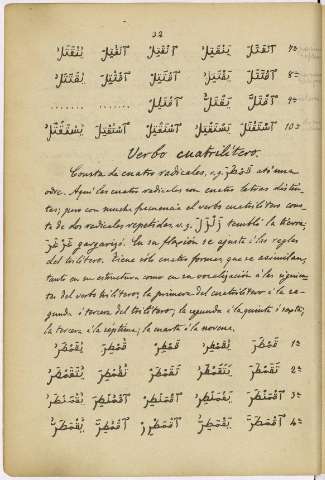 32
اِنْقَتَلَ يَنْقَتِلُ اِنْقَتِلْ اُنْقُتِلَ يُنْقَتَلُ 7ª
اِقْتَتَلَ يَقْتَتِلُ اِقْتَتِلْ اُقْتُتِلَ يُقْتَتَلُ 8ª
اِقْتَلَّ يَقْتَلُّ اِقْتَلِلْ ....... ....... 9ª
اِسْتَقْتَلَ يَسْتَقْتِلُ اِسْتَقْتِلْ اُسْتُقْتِلَ يُسْتَقْتَلُ 10ª
Verbo cuatrilítero.
Consta de cuatro radicales, v.g. قَمْطَرَ ató un
odre. Aquí los cuatro radicales son cuatro letras distin-
tas; pero con mucha frecuencia el verbo cuatrilítero cons-
ta de dos radicales repetidas, v.g. زَلْزَلَ tembló la tierra;
غَرْغَرَ gargarizó. En su flexión se ajusta á las reglas
del trilítero. Tiene sólo cuatro formas, que se asimilan,
tanto en su estructura como en su vocalización á las siguien-
tes del verbo trilítero; la primera del cuatrilítero á la se-
gunda i tercera del trilítero; la segunda á la quinta i sexta;
la tercera á la séptima; la cuarta á la novena.
قَمْطَرَ يُقَمْطِرُ قَمْطِرْ قُمْطِرَ يُقَمْطَرُ 1ª
تَقَمْطَرَ يَتَقَمْطَرُ تَقَمْطَرْ تُقُمْطِرَ يُتَقَمْطَرُ 2ª
اِقْمَنْطَرَ يَقْمَنْطِرُ اِقْمَنْطِرْ اُقْمُنْطِرَ يُقْمَنْطَرُ 3ª
اِقْمَطَرَّ يَقْمَطِرُّ اِقْمَطْرِرْ اُقْمُطِرَّ يُقْمَطَرُّ 4ª